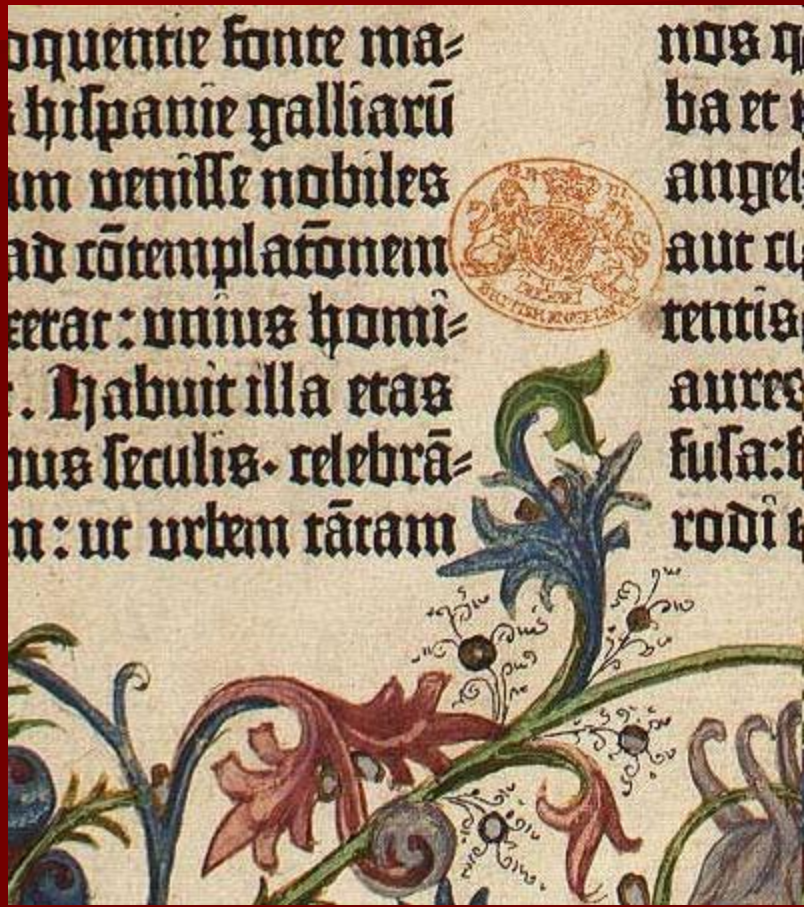 oquentie fonte ma⸗
hiſpanie galliarū
am veniſſe nobiles
ad cōtemplatōnem
xerat: unius homi⸗
. Habuit illa etas
bus ſeculis. celebrā⸗
m: ut urbem tātam
nos q
ba et
angel
aut cu
tentis
aures
fuſa:
rodi